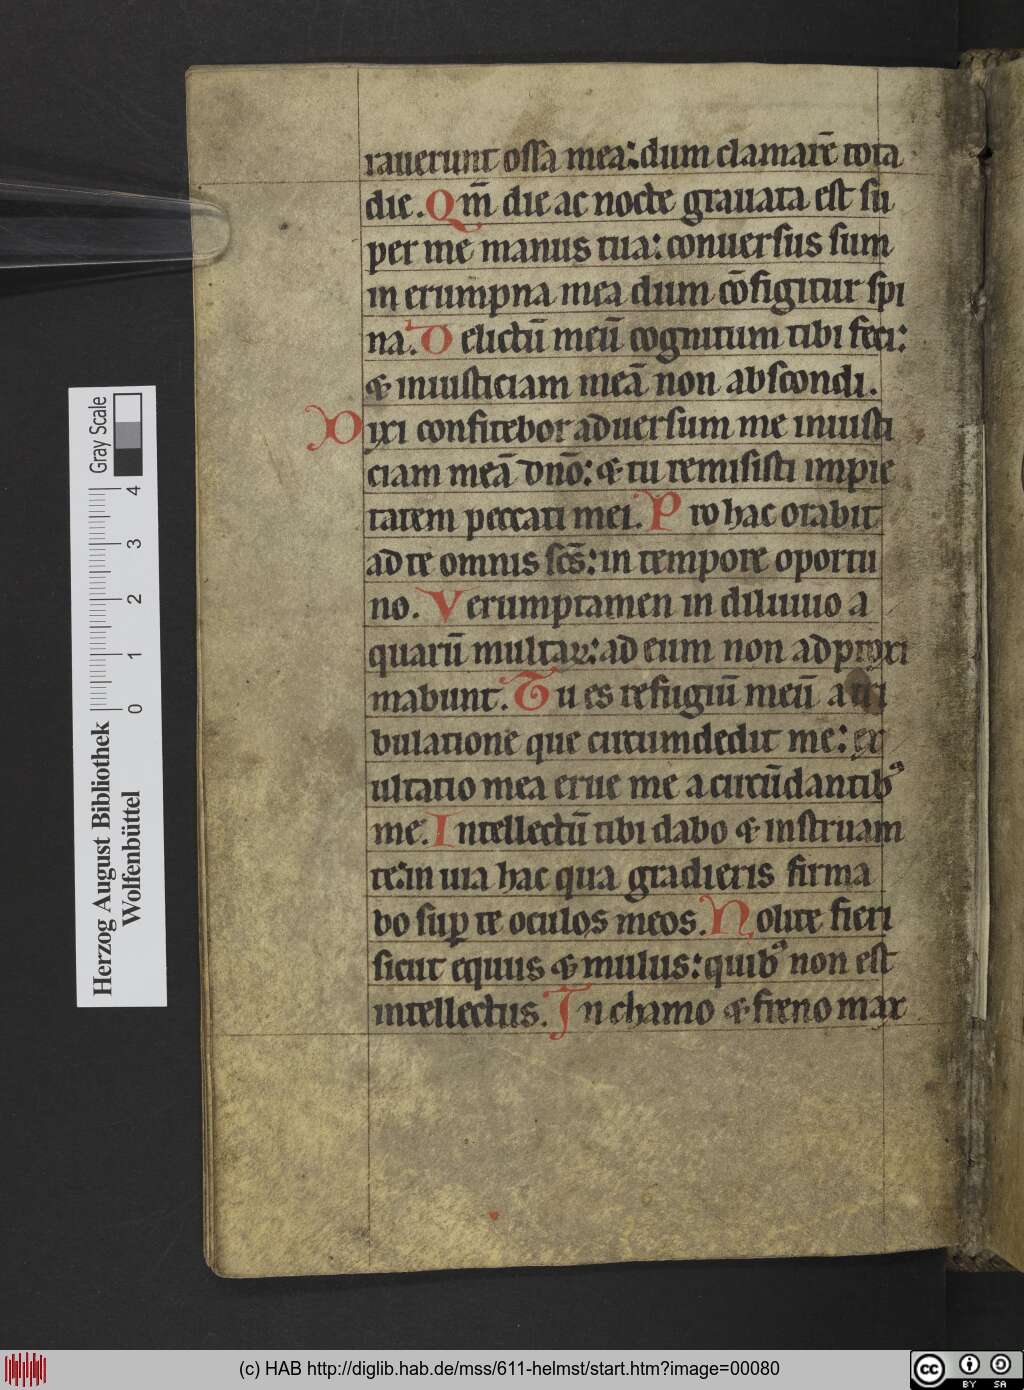 rauerunt ossa mea: dum clamarē tota
die. Qm̄ die ac nocte grauata est su
per me manus tua: conuersus sum
in erumpna mea dum cōfigitur spi
na. Delictū meū cognitum tibi feci:
& iniusticiam meā non abscondi.
Dixi confitebor aduersum me iniusti
ciam meā dnō: & tu remisisti impie
tatem peccati mei. Pro hac orabit
ad te omnis sc̄s: in tempore oportu
no. Verumptamen in diluuio a
quarū multaꝝ: ad eum non ad proxi
mabunt. Tu es refugiū meū a tri
bulatione que circumdedit me: ex
ultatio mea erue me a circūdantibꝰ
me. Intellectū tibi dabo & instruam
te: in uia hac qua gradieris firma
bo sup̱ te oculos meos. Nolite fieri
sicut equus & mulus: quibꝰ non est
intellectus. In chamo & freno max
Herzog August Bibliothek
Wolfenbüttel
Gray Scale
0 1 2 3 4
(c) HAB http://diglib.hab.de/mss/611-helmst/start.htm?image=00080
cc BY SA